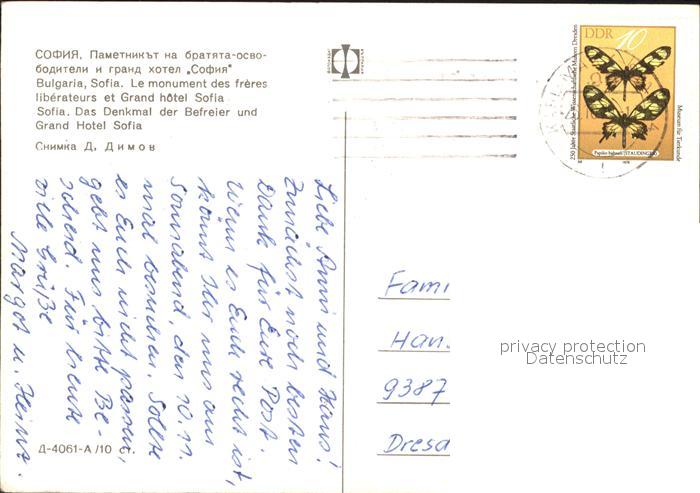 СОФИЯ, Паметникът на братята-осво-
бодители и гранд хотел „София"
Bulgaria, Sofia. Le monument des frères
libérateurs et Grand hôtel Sofia
Sofia. Das Denkmal der Befreier und
Grand Hotel Sofia
Снимка Д. Димов
Liebe Anni und Hans!
Zunächst noch besten
Dank für Eure Post.
Wenn es Euch recht ist,
könnt Ihr uns am
Sonnabend, den 10.11.
mal besuchen. Sollte
es Euch nicht passen,
gebt uns bitte Be-
scheid. Für heute
viele Grüße
Margot u. Heinz.
Д-4061-А /10 ст.
DDR 10
250 Jahre Staatliche Wissenschaftliche Museen Dresden
Museum für Tierkunde
Papilio hahneli (STAUDINGER)
1975
Fami
Han.
9387
Dresa
privacy protection
Datenschutz